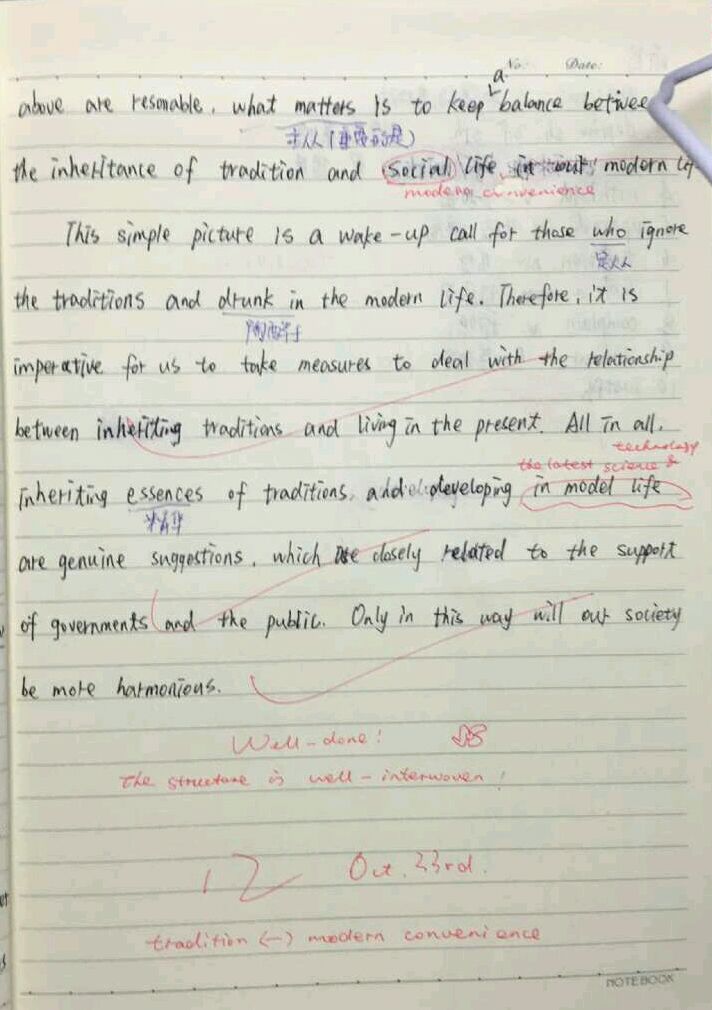 No: Date:
a
above are resonable, what matters is to keep balance betwee
主从(重要的是)
the inheritance of tradition and social life in our modern
modern convenience
This simple picture is a wake-up call for those who ignore
定从
the traditions and drunk in the modern life. Therefore, it is
陶醉于
imperative for us to take measures to deal with the relationship
between inheriting traditions and living in the present. All in all,
technology
the latest science &
inheriting essences of traditions, and developing in model life
精华
are genuine suggestions, which are closely related to the support
of governments and the public. Only in this way will our society
be more harmonious.
Well-done!
The structure is well-interwoven!
12 Oct. 23rd.
tradition (—) modern convenience
NOTEBOOK